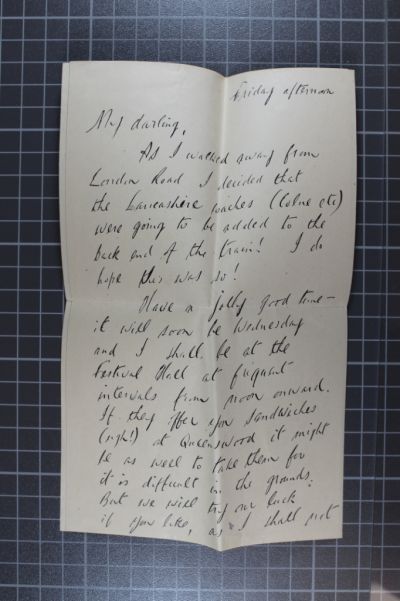 Friday afternoon
My darling,
As I walked away from
London Road I decided that
the Lancashire coaches (Colne etc)
were going to be added to the
back end of the train! I do
hope this was so!
Have a jolly good time —
it will soon be Wednesday
and I shall be at the
Festival Hall at frequent
intervals from noon onward.
If they offer you sandwiches
(ugh!) at Queenswood it might
be as well to take them for
it is difficult in the grounds.
But we will try our luck
if you like, as I shall not